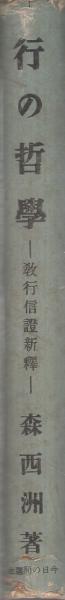 行の哲學
—教行信證新釋—
森西洲著
今日の問題社